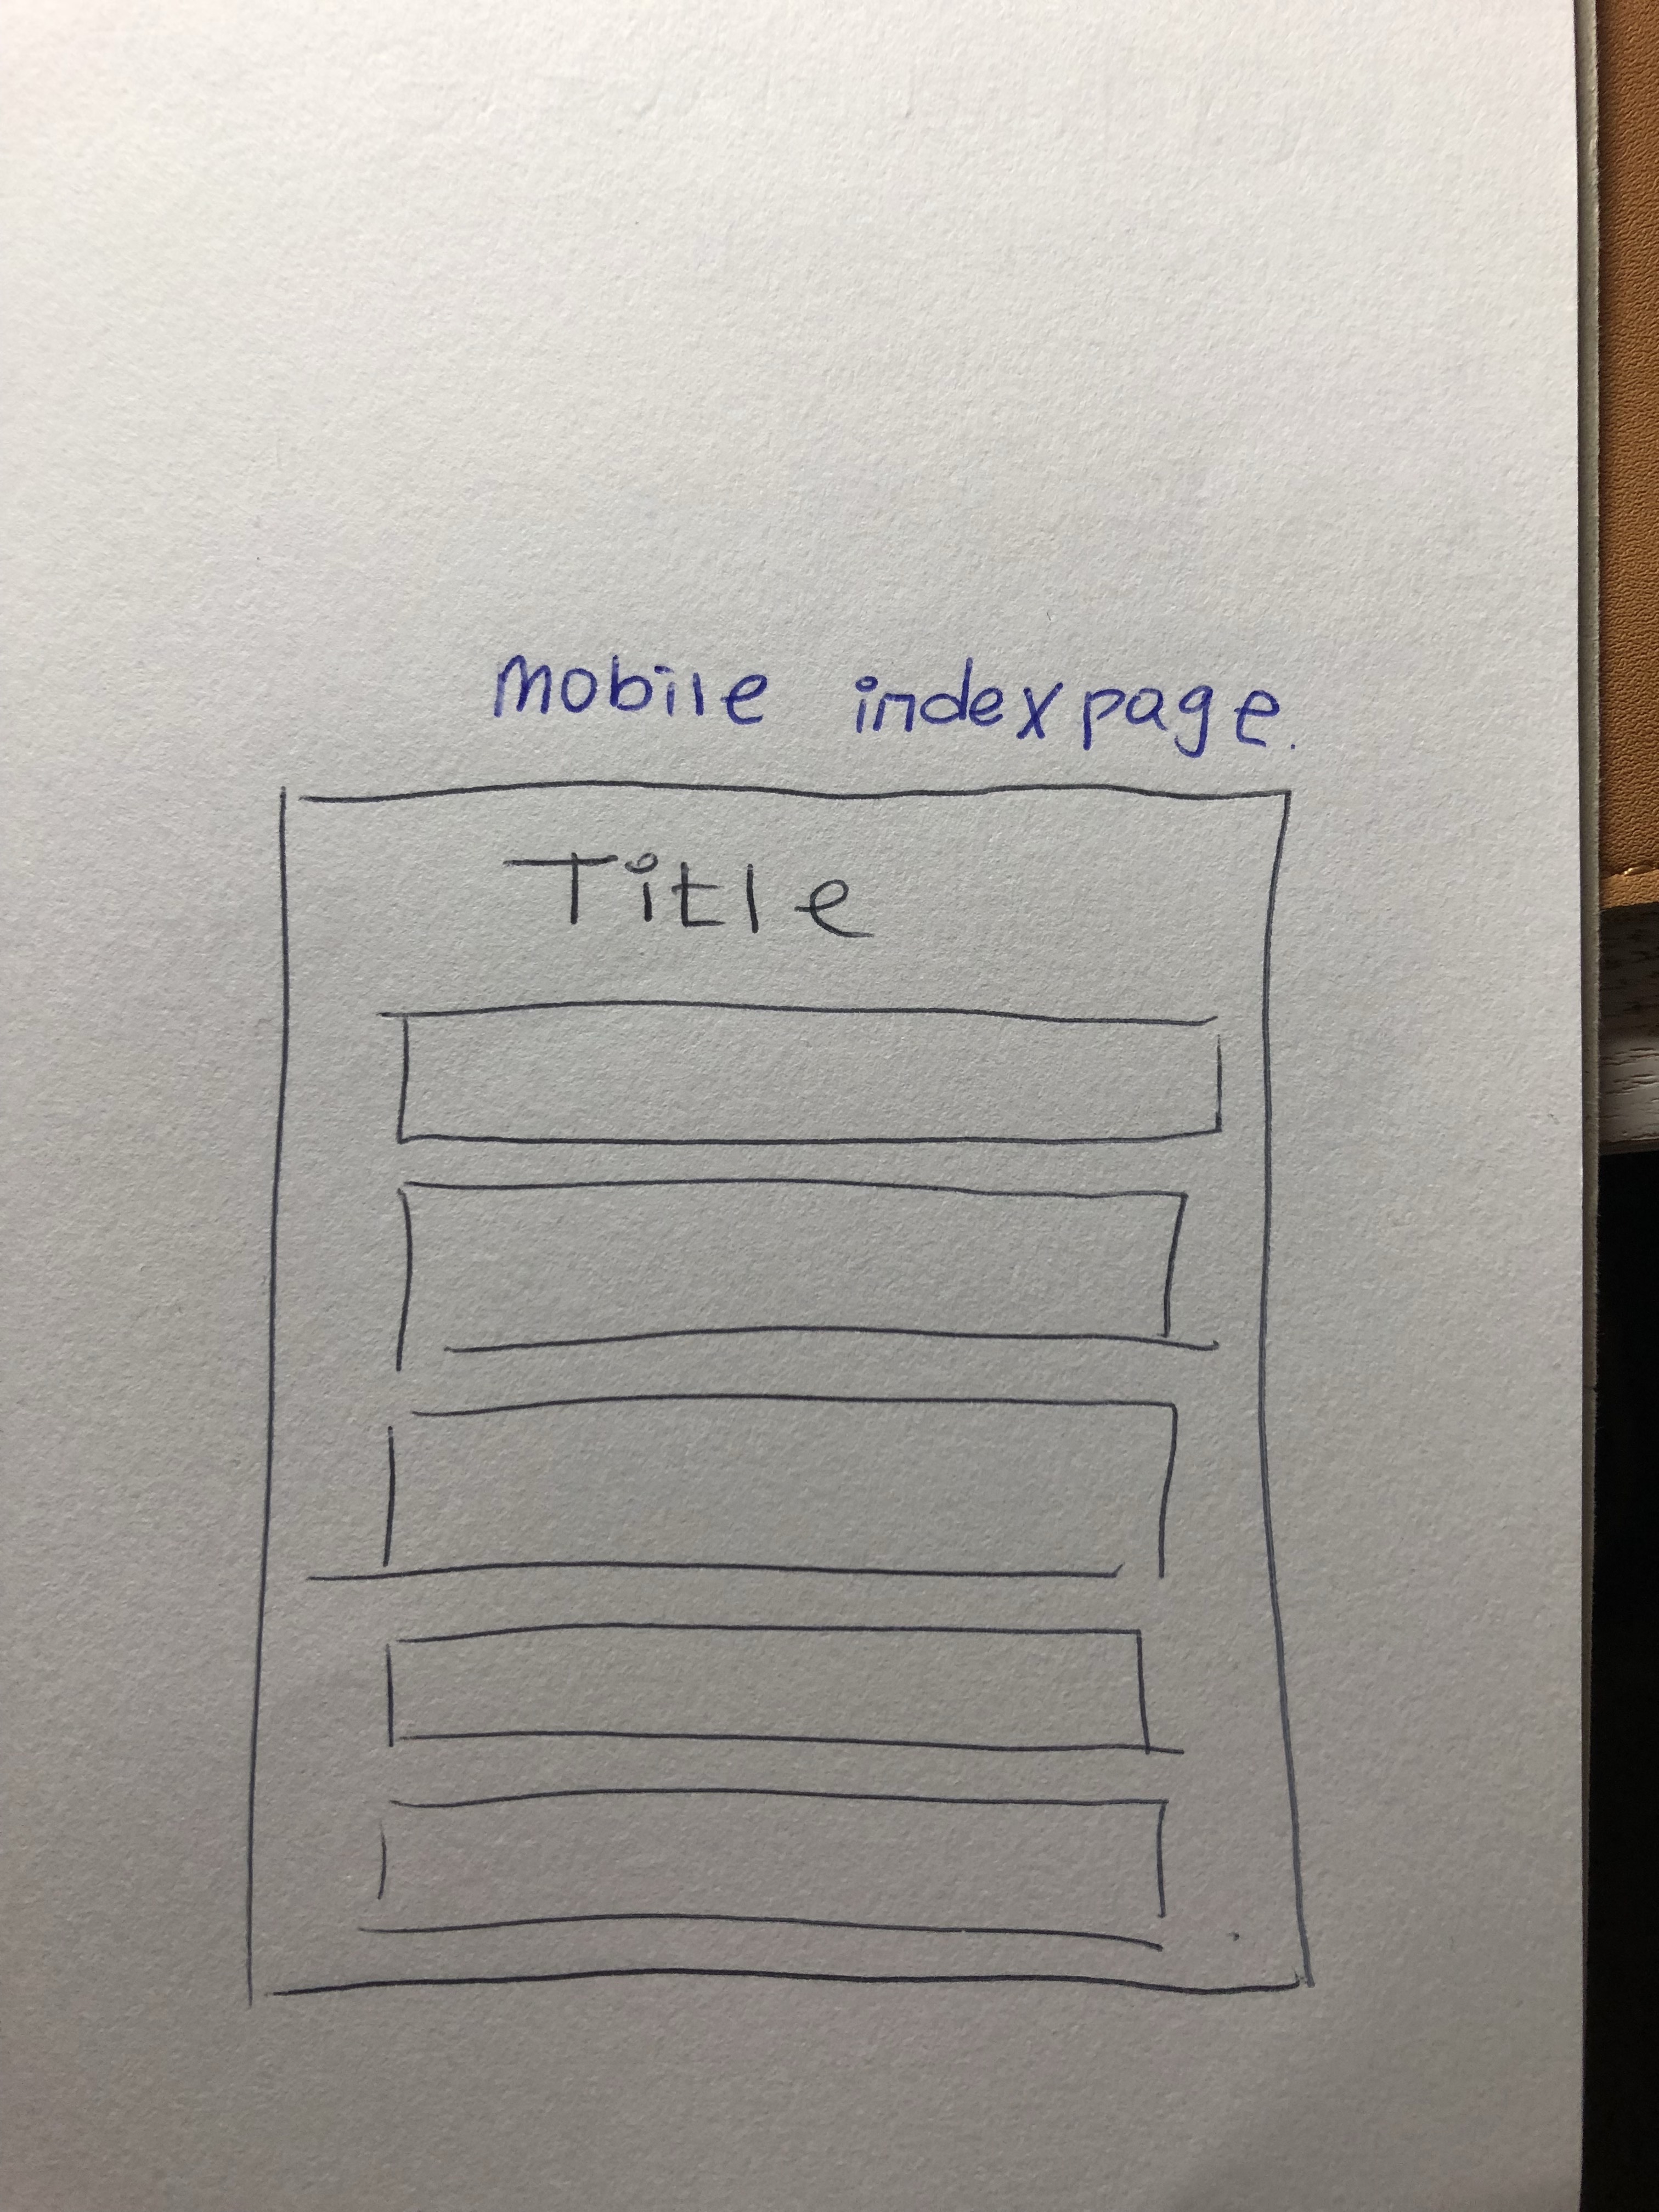 mobile indexpage.
Title